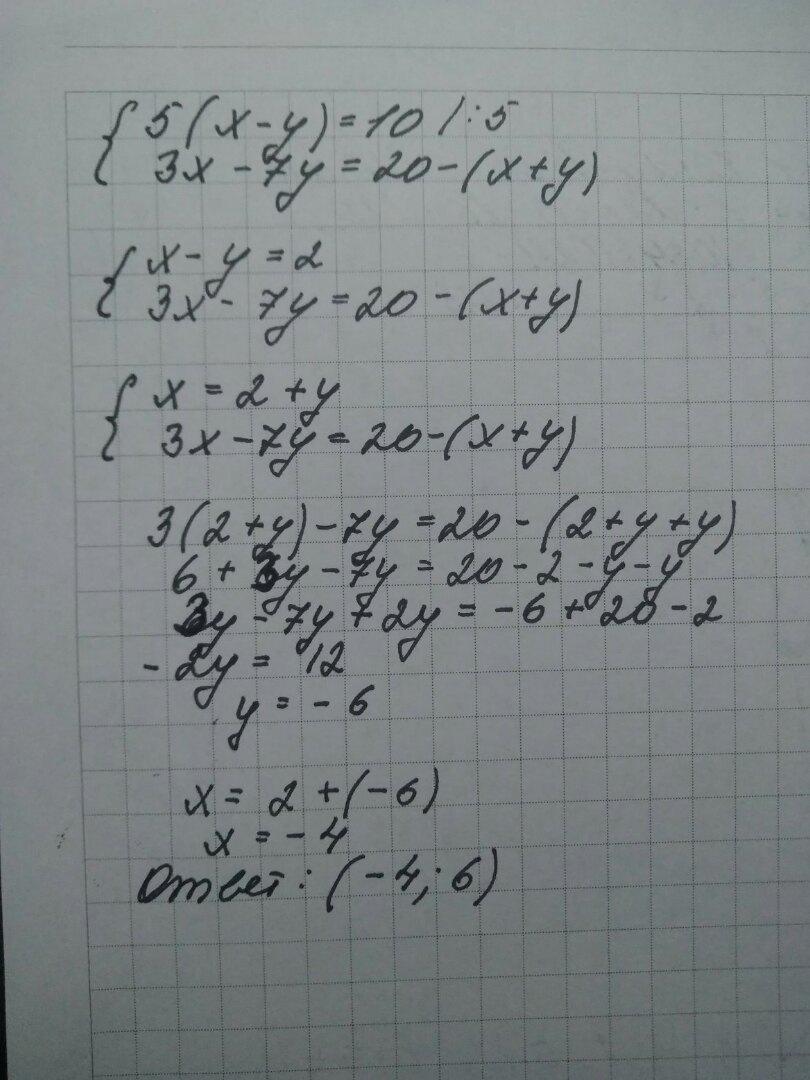 { 5(x-y)=10 /:5
3x-7y=20-(x+y)
{ x-y=2
3x-7y=20-(x+y)
{ x=2+y
3x-7y=20-(x+y)
3(2+y)-7y=20-(2+y+y)
6+3y-7y=20-2-y-y
3y-7y+2y=-6+20-2
-2y=12
y=-6
x=2+(-6)
x=-4
Ответ: (-4; 6)